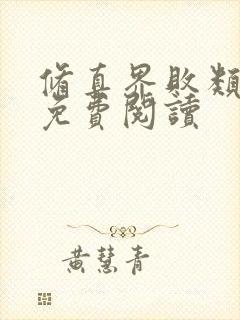 脩真界敗類
免費閱讀
黃慧青